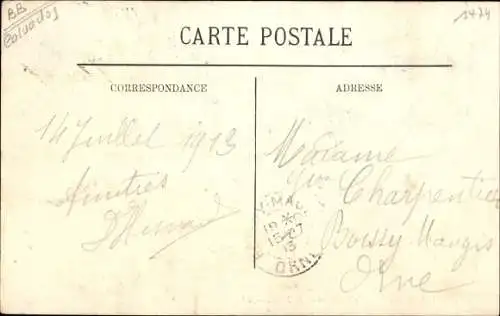 BB
Calvados
1474
CARTE POSTALE
CORRESPONDANCE
ADRESSE
14 Juillet 1913
Amitiés
Madame
Vve Charpentier
Boissy Maugis
Orne
15-7
13
ORNE